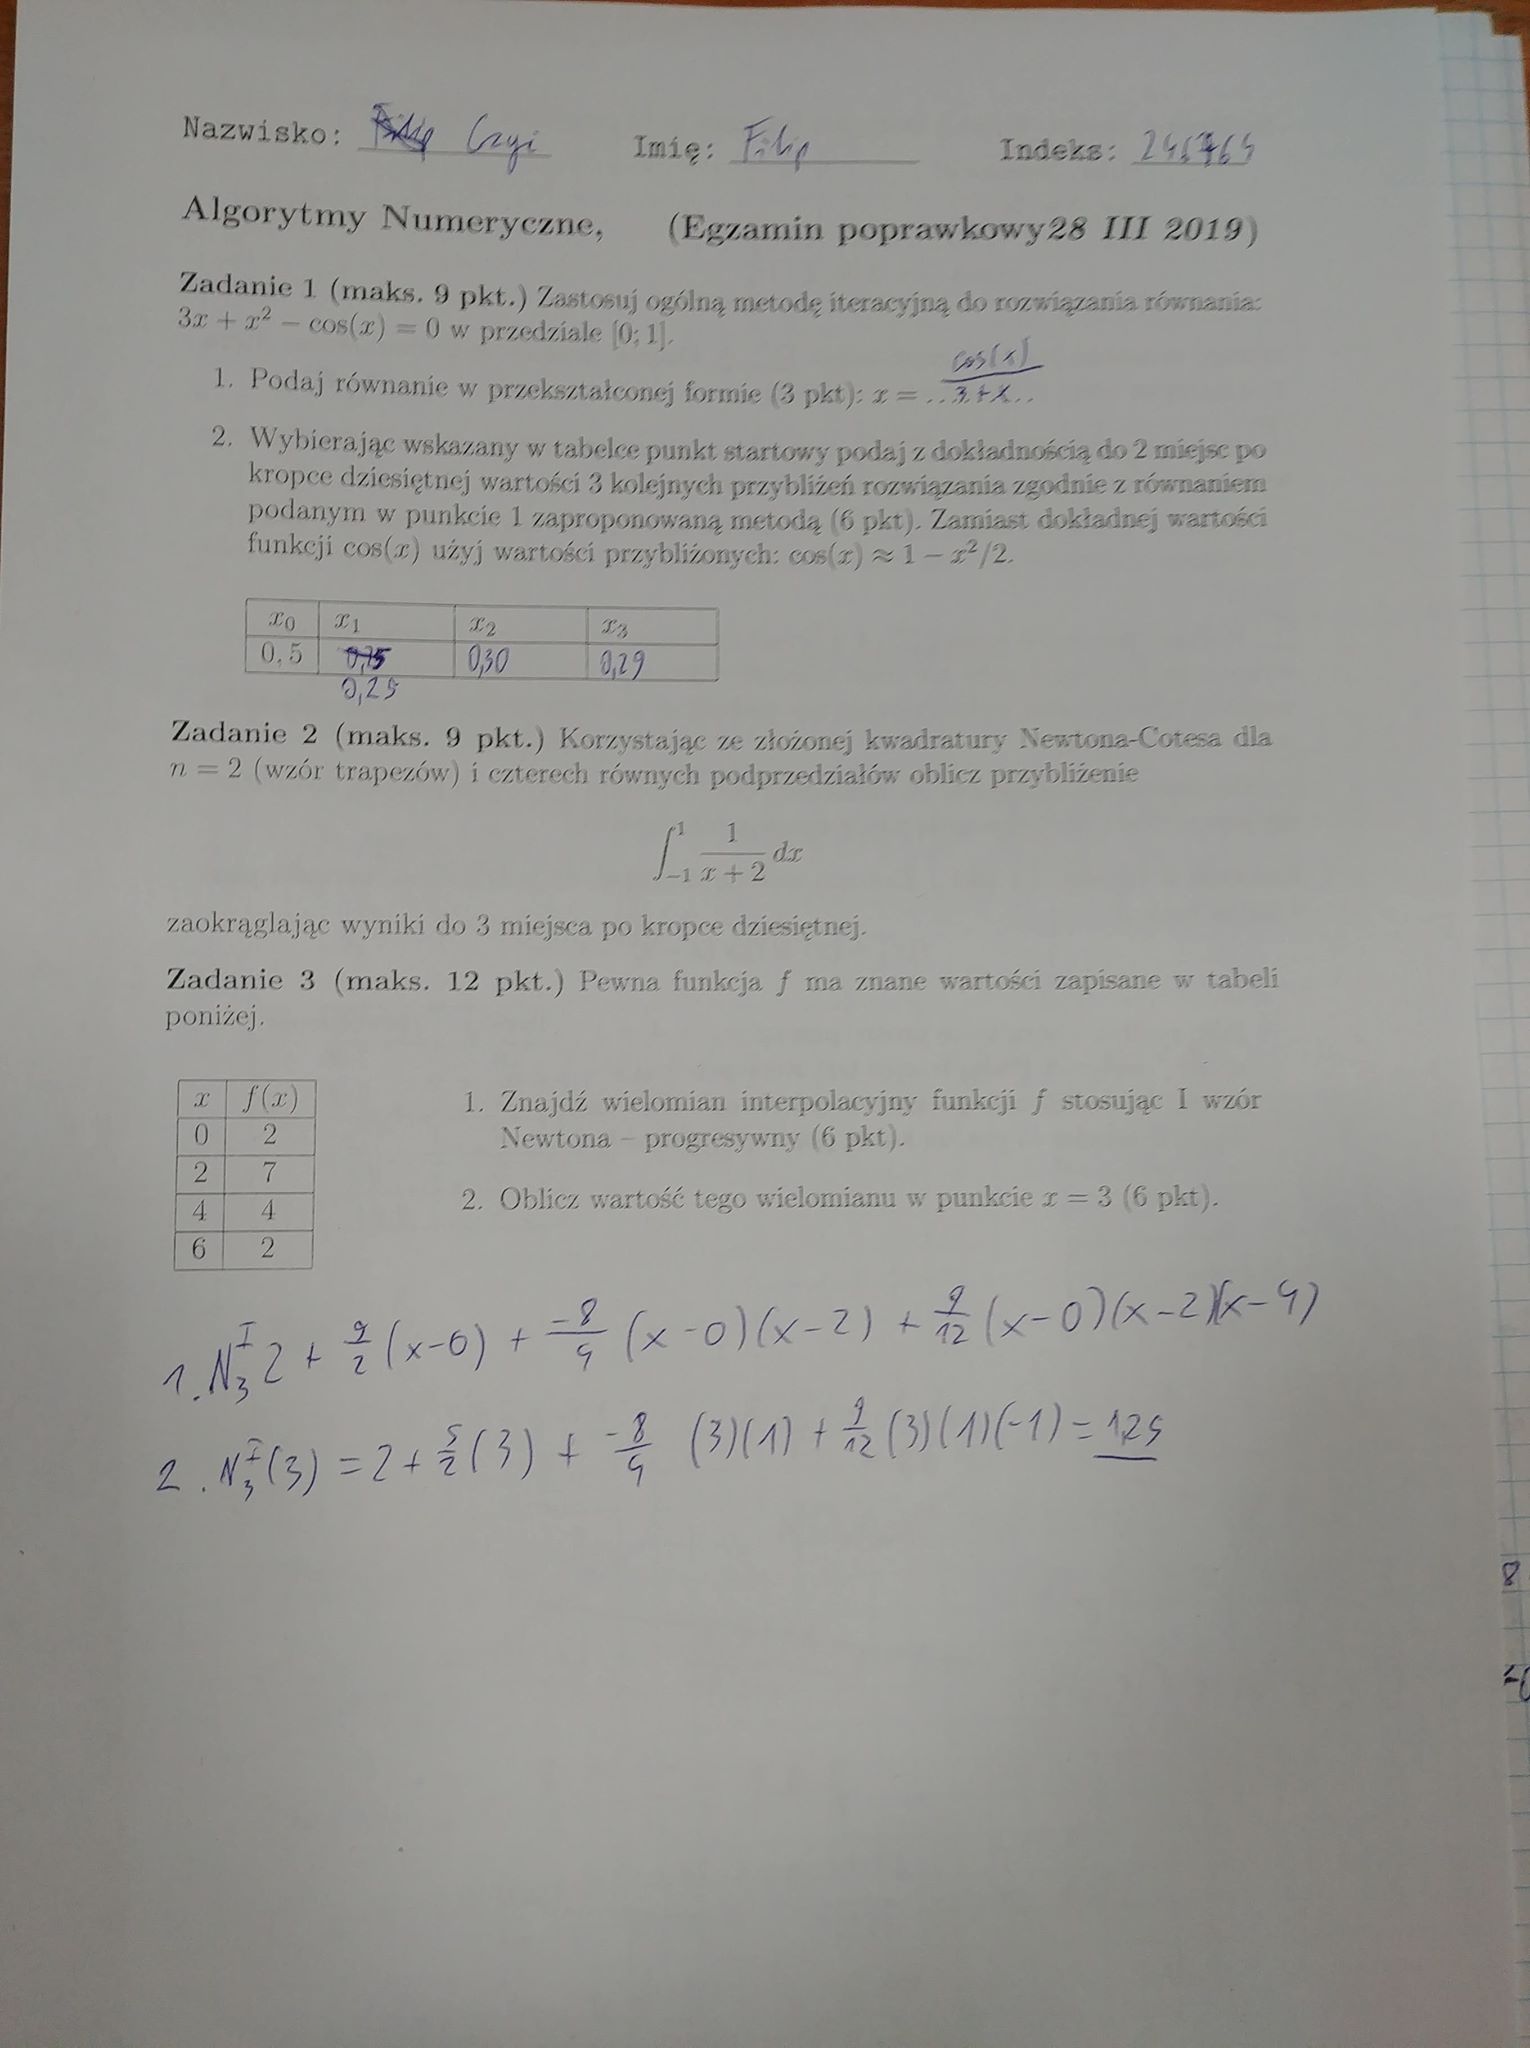 Nazwisko: Czyi Imię: Filip Indeks:
Algorytmy Numeryczne, (Egzamin poprawkowy28 III 2019)
Zadanie 1 (maks. 9 pkt.) Zastosuj ogólną metodę iteracyjną do rozwiązania równania:
3x + x² − cos(x) = 0 w przedziale [0; 1].
cos(x)
1. Podaj równanie w przekształconej formie (3 pkt): x = ..3+x..
2. Wybierając wskazany w tabelce punkt startowy podaj z dokładnością do 2 miejsc po
kropce dziesiętnej wartości 3 kolejnych przybliżeń rozwiązania zgodnie z równaniem
podanym w punkcie 1 zaproponowaną metodą (6 pkt). Zamiast dokładnej wartości
funkcji cos(x) użyj wartości przybliżonych: cos(x) ≈ 1 − x²/2.
x0 x1 x2 x3
0,5 0,30 0,29
0,25
Zadanie 2 (maks. 9 pkt.) Korzystając ze złożonej kwadratury Newtona-Cotesa dla
n = 2 (wzór trapezów) i czterech równych podprzedziałów oblicz przybliżenie
∫₋₁¹ 1/(x + 2) dx
zaokrąglając wyniki do 3 miejsca po kropce dziesiętnej.
Zadanie 3 (maks. 12 pkt.) Pewna funkcja f ma znane wartości zapisane w tabeli
poniżej.
x f(x)
0 2
2 7
4 4
6 2
1. Znajdź wielomian interpolacyjny funkcji f stosując I wzór
Newtona – progresywny (6 pkt).
2. Oblicz wartość tego wielomianu w punkcie x = 3 (6 pkt).
1. N₃ᴵ 2 + 9/2 (x-0) + -8/4 (x-0)(x-2) + 9/12 (x-0)(x-2)(x-4)
2. N₃ᴵ(3) = 2 + 5/2 (3) + -8/4 (3)(1) + 9/12 (3)(1)(-1) = 1,25
8